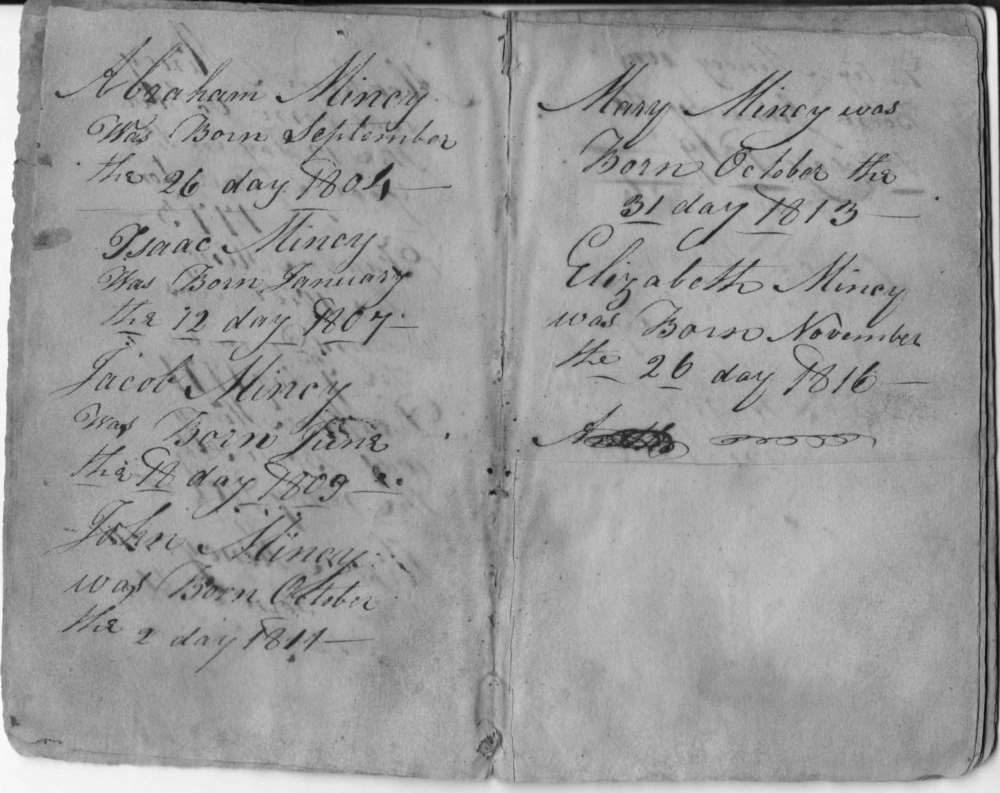 Abraham Mincy
Was Born September
the 26 day 1804
Isaac Mincy
Was Born January
the 12 day 1807
Jacob Mincy
Was Born June
the 18 day 1809
John Mincy
was Born October
the 2 day 1811
Mary Mincy was
Born October the
31 day 1813
Elizabeth Mincy
was Born November
the 26 day 1816